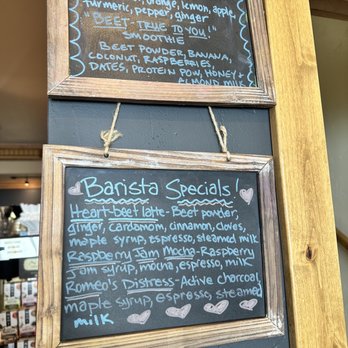 orange, lemon, apple,
turmeric, pepper, ginger
"BEET-TRUE TO YOU!"
SMOOTHIE
BEET POWDER, BANANA,
COCONUT, RASPBERRIES,
DATES, PROTEIN POW, HONEY &
ALMOND MILK
Barista Specials!
Heart-beet latte - Beet powder,
ginger, cardamom, cinnamon, cloves,
maple syrup, espresso, steamed milk
Raspberry Jam Mocha - Raspberry
Jam syrup, mocha, espresso, milk
Romeo's Distress - Active charcoal,
maple syrup, espresso, steamed
milk